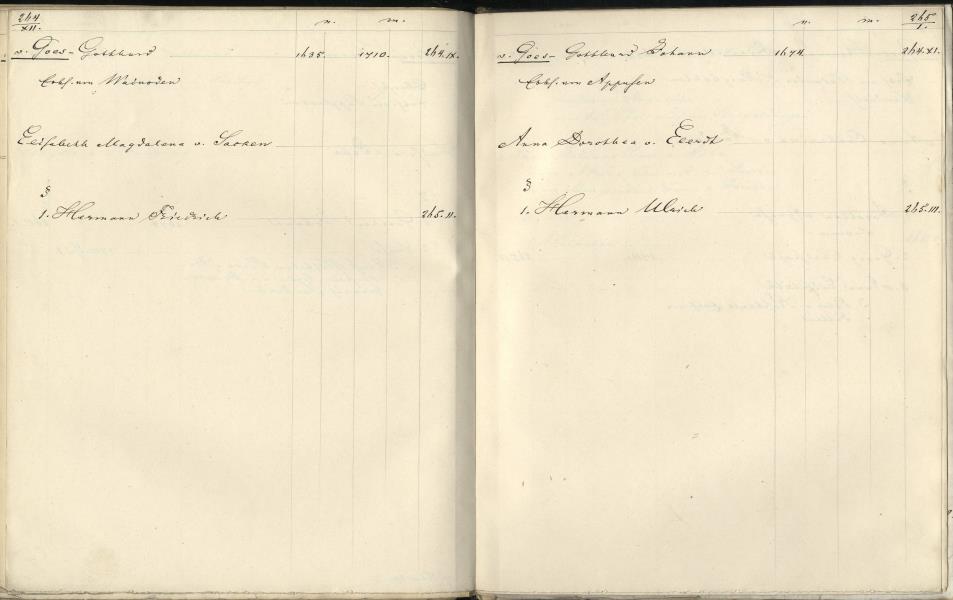 264
XII.
n.
m.
v. Goes- Gotthard 1635. 1710. 264.IX.
Erbh. von
Elisabeth Magdalena v. Sacken
§
1. Hermann Friedrich 265.II.
n.
m.
265
I.
v. Goes- Gotthard Johann 1674. 264.XI.
Erbh. von Appussen
Anna Dorothea v.
§
1. Hermann Ulrich 265.III.